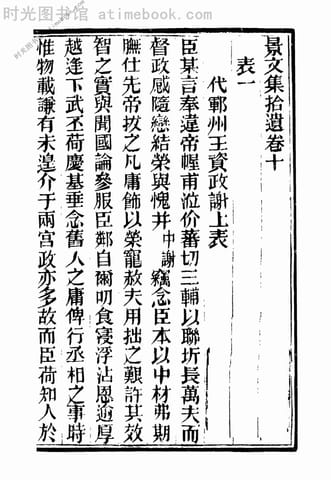 时光图书馆 - atimebook.com
景文集拾遺卷十
表一
代鄆州王資政謝上表
臣某言奉違帝幄甫涖价蕃切三輔以聯圻長萬夫而
督政感隨戀結榮與愧并中謝竊念臣本以中材弗期
膴仕先帝拔之凡庸飾以榮寵赦夫用拙之艱許其效
智之實與聞國論參服臣鄰自爾叨食寖浮沾恩逾厚
越逢下武丕荷慶基垂念舊人之庸俾行丞相之事時
惟物載謙有未遑介于兩宮政亦多故而臣荷知人於